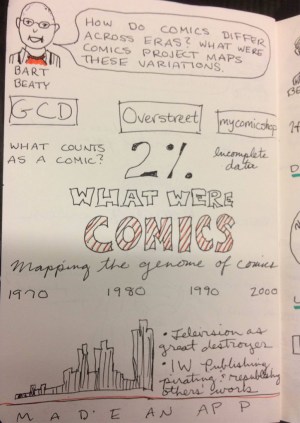 HOW DO COMICS DIFFER
ACROSS ERAS? WHAT WERE
COMICS PROJECT MAPS
THESE VARIATIONS.
BART
BEATY
GCD
Overstreet
mycomicshop
WHAT COUNTS
AS A COMIC?
2%
incomplete
data
WHAT WERE
COMICS
Mapping the genome of comics
1970 1980 1990 2000
• Television as
great destroyer
• IW Publishing
pirating & republishing
others' work
MADE AN APP